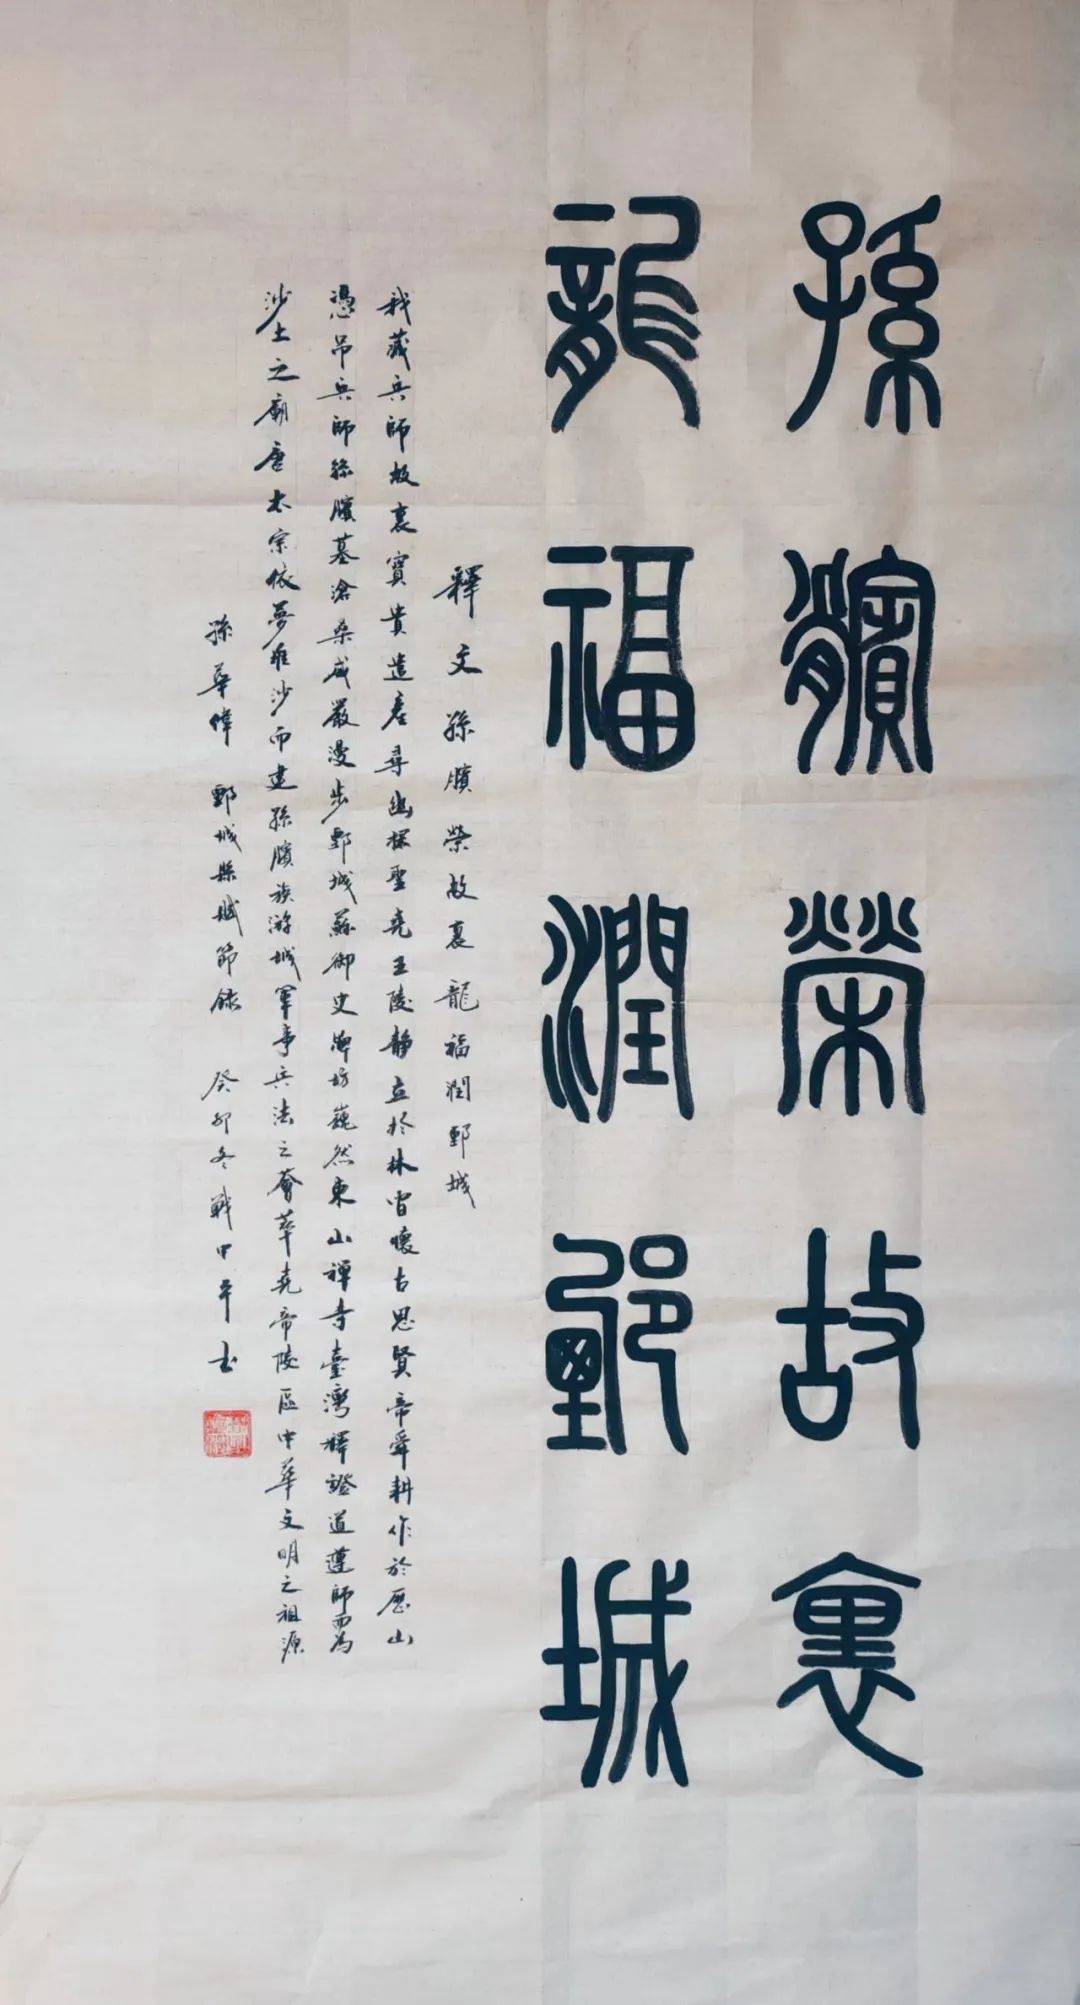 孫臏榮故裏
龍福潤鄄城
釋文孫臏榮故裏龍福潤鄄城
我藏兵師故裏寶貴遺產尋幽探聖堯王陵靜立於林間懷古思賢帝舜耕作於歷山
憑吊兵師孫臏墓滄桑威嚴漫步鄄城蘇御史牌坊巍然東山禪寺臺灣釋證道遵師而為
沙土之廟唐太宗依夢堆沙而建孫臏族游城軍事兵法之薈萃堯帝陵區中華文明之祖源
孫華偉 鄄城縣賦節錄 癸卯冬戰甲平书